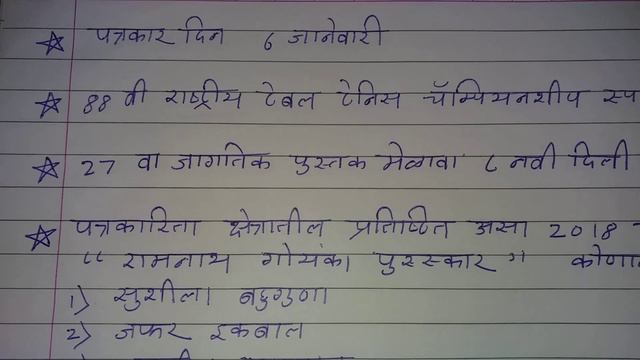 ☆ पत्रकार दिन 6 जानेवारी
☆ 88 वी राष्ट्रीय टेबल टेनिस चॅम्पियनशीप स्प
☆ 27 वा जागतिक पुस्तक मेळावा ८ नवी दिली
☆ पत्रकारिता क्षेत्रातील प्रतिष्ठित असा 2018
“ रामनाथ गोयंका पुरस्कार ” कोणा
1) सुशीला बहुगुणा
2) जफर इकबाल